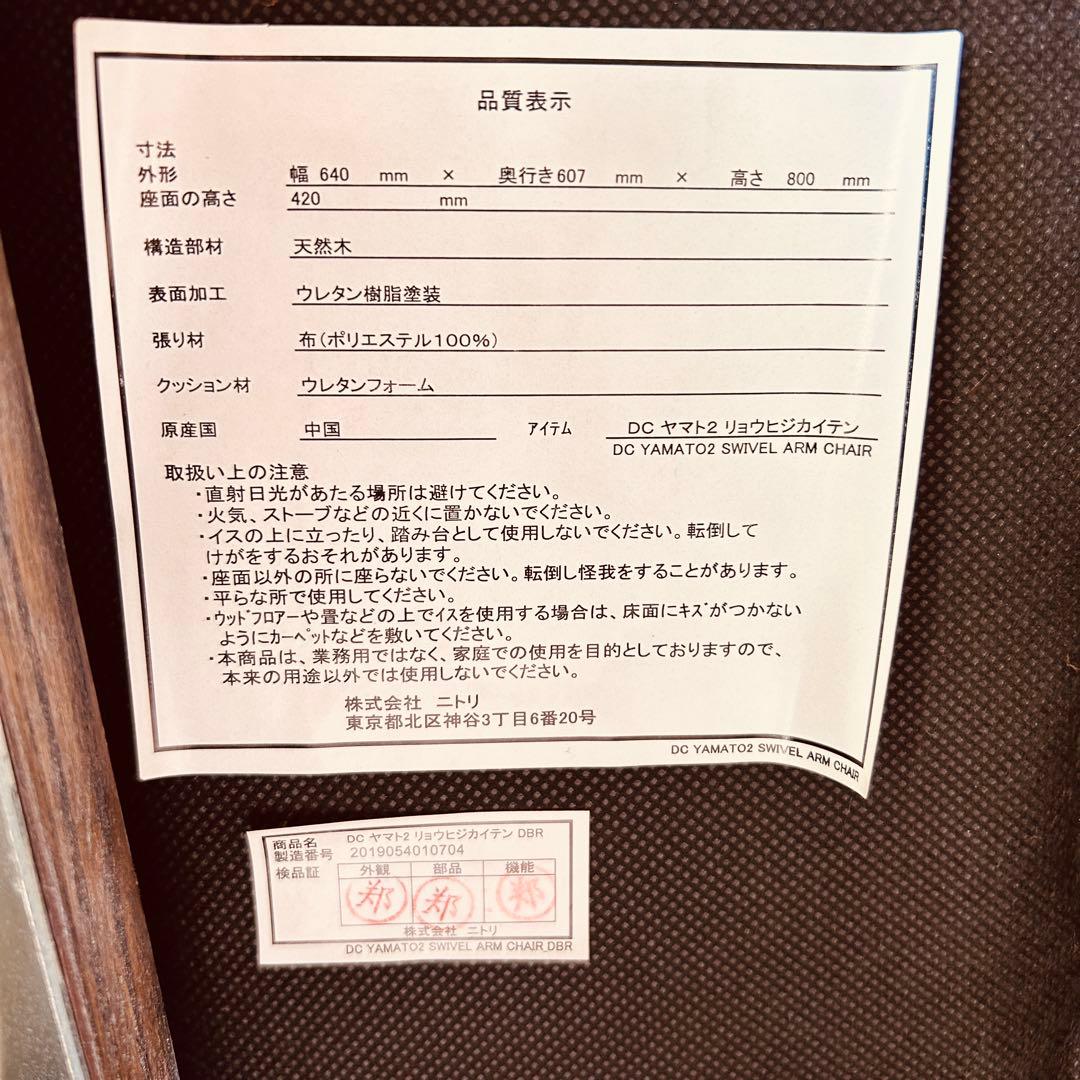 品質表示
寸法
外形 幅 640 mm × 奥行き607 mm × 高さ 800 mm
座面の高さ 420 mm
構造部材 天然木
表面加工 ウレタン樹脂塗装
張り材 布(ポリエステル100%)
クッション材 ウレタンフォーム
原産国 中国 アイテム DC ヤマト2 リョウヒジカイテン
DC YAMATO2 SWIVEL ARM CHAIR
取扱い上の注意
・直射日光があたる場所は避けてください。
・火気、ストーブなどの近くに置かないでください。
・イスの上に立ったり、踏み台として使用しないでください。転倒して
けがをするおそれがあります。
・座面以外の所に座らないでください。転倒し怪我をすることがあります。
・平らな所で使用してください。
・ウッドフロアーや畳などの上でイスを使用する場合は、床面にキズがつかない
ようにカーペットなどを敷いてください。
・本商品は、業務用ではなく、家庭での使用を目的としておりますので、
本来の用途以外では使用しないでください。
株式会社 ニトリ
東京都北区神谷3丁目6番20号
DC YAMATO2 SWIVEL ARM CHAIR
商品名 DC ヤマト2 リョウヒジカイテン DBR
製造番号 2019054010704
検品証 外観 部品 機能
郑 郑 郑
株式会社 ニトリ
DC YAMATO2 SWIVEL ARM CHAIR_DBR